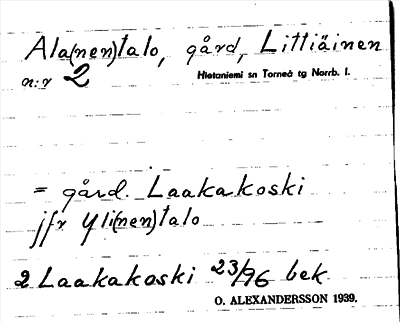 Ala(nen)talo, gård, Littiäinen
n:r 2 Hietaniemi sn Torneå tg Norrb. l.
= gård. Laakakoski
jfr Yli(nen)talo
2 Laakakoski 23/96 bek.
O. ALEXANDERSSON 1939.